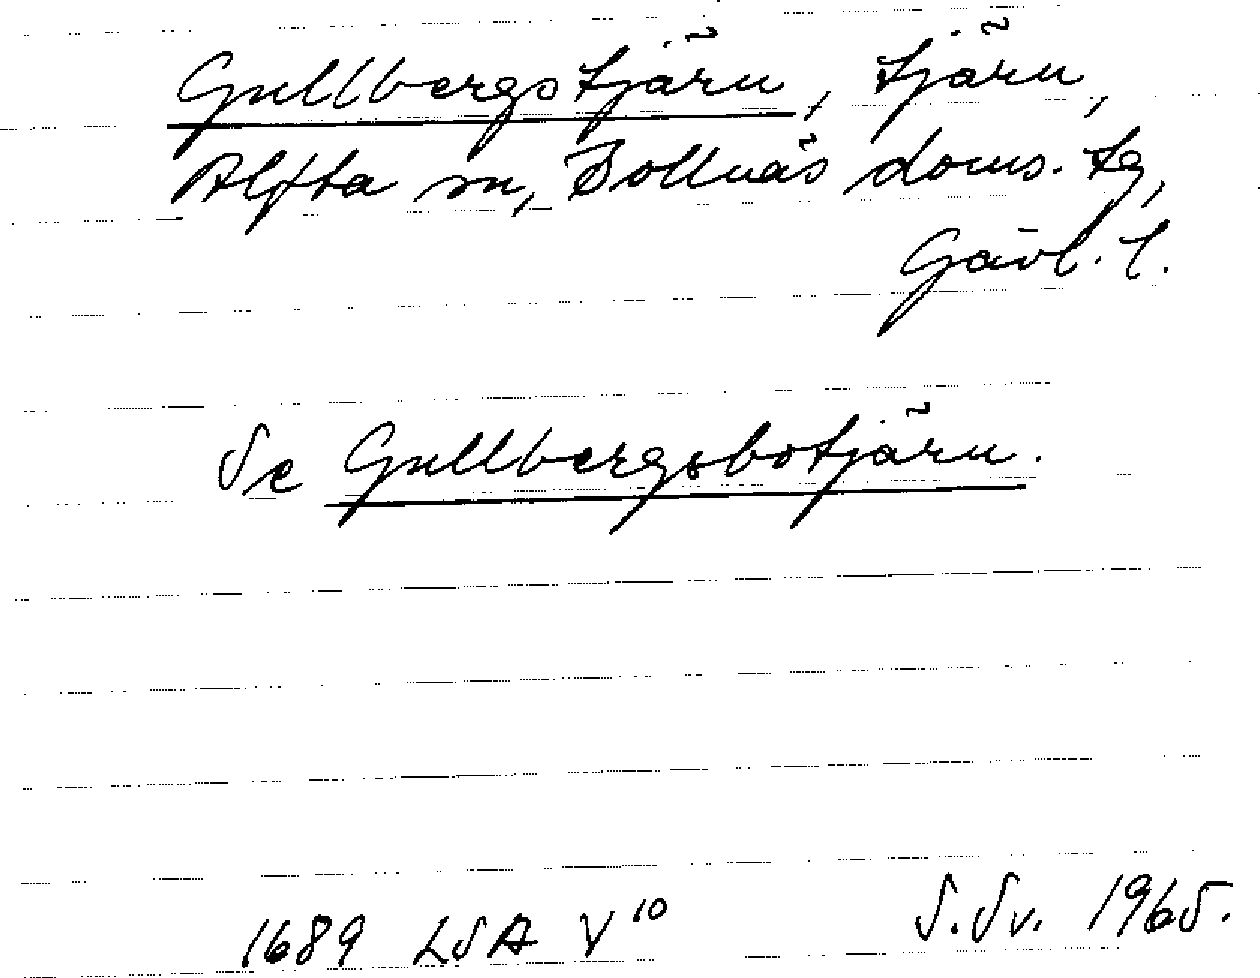 Gullbergstjärn, tjärn,
Alfta sn, Bollnäs doms. tg,
Gävl. l.
Se Gullbergsbotjärn.
1689 LSA V10
S.Sv. 1965.